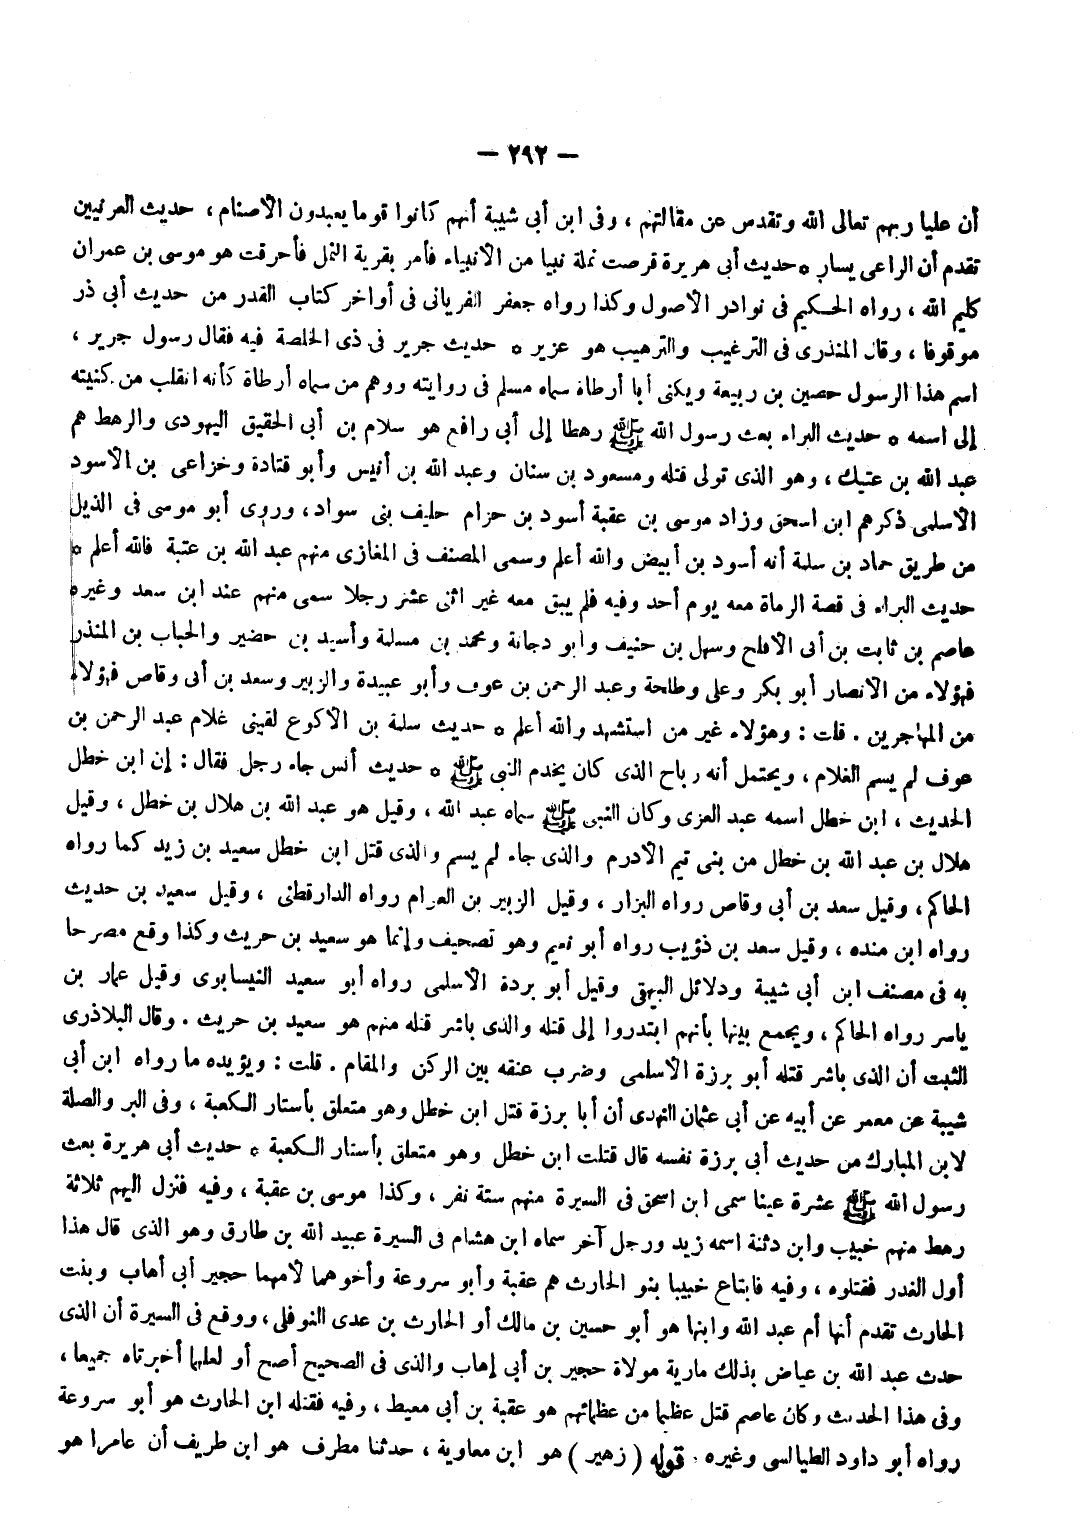 — ٢٩٢ —
أن عليا ربهم تعالى الله وتقدس عن مقالتهم ، وفى ابن أبى شيبة أنهم كانوا قوما يعبدون الأصنام ، حديث العرنيين
تقدم أن الراعى يسار * حديث أبى هريرة قرصت نملة نبيا من الأنبياء فأمر بقرية النمل فأحرقت هو موسى بن عمران
كليم الله ، رواه الحكيم فى نوادر الأصول وكذا رواه جعفر الفريانى فى أواخر كتاب القدر من حديث أبى ذر
موقوفا ، وقال المنذرى فى الترغيب والترهيب هو عزير * حديث جرير فى ذى الخلصة فيه فقال رسول جرير ،
اسم هذا الرسول حصين بن ربيعة ويكنى أبا أرطاة سماه مسلم فى روايته ووهم من سماه أرطاة كأنه انقلب من كنيته
إلى اسمه * حديث البراء بعث رسول الله ﷺ رهطا إلى أبى رافع هو سلام بن أبى الحقيق اليهودى والرهط هم
عبد الله بن عتيك ، وهو الذى تولى قتله ومسعود بن سنان وعبد الله بن أنيس وأبو قتادة وخزاعى بن الأسود
الأسلمى ذكرهم ابن اسحق وزاد موسى بن عقبة أسود بن حزام حليف بنى سواد ، وروى أبو موسى فى الذيل
من طريق حماد بن سلمة أنه أسود بن أبيض والله أعلم وسمى المصنف فى المغازى منهم عبد الله بن عتبة فالله أعلم *
حديث البراء فى قصة الرماة معه يوم أحد وفيه فلم يبق معه غير اثنى عشر رجلا سمى منهم عند ابن سعد وغيره
عاصم بن ثابت بن أبى الأفلح وسهل بن حنيف وأبو دجانة ومحمد بن مسلمة وأسيد بن حضير والحباب بن المنذر
فهؤلاء من الأنصار أبو بكر وعلى وطلحة وعبد الرحمن بن عوف وأبو عبيدة والزبير وسعد بن أبى وقاص فهؤلاء
من المهاجرين . قلت : وهؤلاء غير من استشهد والله أعلم * حديث سلمة بن الأكوع لقينى غلام عبد الرحمن بن
عوف لم يسم الغلام ، ويحتمل أنه رباح الذى كان يخدم النبى ﷺ * حديث أنس جاء رجل فقال : إن ابن خطل
الحديث ، ابن خطل اسمه عبد العزى وكان النبى ﷺ سماه عبد الله ، وقيل هو عبد الله بن هلال بن خطل ، وقيل
هلال بن عبد الله بن خطل من بنى تيم الأدرم والذى جاء لم يسم والذى قتل ابن خطل سعيد بن زيد كما رواه
الحاكم ، وقيل سعد بن أبى وقاص رواه البزار ، وقيل الزبير بن العوام رواه الدارقطنى ، وقيل سعيد بن حديث
رواه ابن منده ، وقيل سعد بن ذؤيب رواه أبو نعيم وهو تصحيف وإنما هو سعيد بن حريث وكذا وقع مصرحا
به فى مصنف ابن أبى شيبة ودلائل البيهقى وقيل أبو بردة الأسلمى رواه أبو سعيد النيسابورى وقيل عمار بن
ياسر رواه الحاكم ، ويجمع بينها بأنهم ابتدروا إلى قتله والذى باشر قتله منهم هو سعيد بن حريث . وقال البلاذرى
الثبت أن الذى باشر قتله أبو برزة الأسلمى وضرب عنقه بين الركن والمقام . قلت : ويؤيده ما رواه ابن أبى
شيبة عن معمر عن أبيه عن أبى عثمان النهدى أن أبا برزة قتل ابن خطل وهو متعلق بأستار الكعبة ، وفى البر والصلة
لابن المبارك من حديث أبى برزة نفسه قال قتلت ابن خطل وهو متعلق بأستار الكعبة * حديث أبى هريرة بعث
رسول الله ﷺ عشرة عينا سمى ابن اسحق فى السيرة منهم ستة نفر ، وكذا موسى بن عقبة ، وفيه فنزل اليهم ثلاثة
رهط منهم خبيب وابن دثنة اسمه زيد ورجل آخر سماه ابن هشام فى السيرة عبيد الله بن طارق وهو الذى قال هذا
أول الغدر فقتلوه ، وفيه فابتاع خبيبا بنو الحارث هم عقبة وأبو سروعة وأخوهما لأمهما حجير أبى أهاب وبنت
الحارث تقدم أنها أم عبد الله وابنها هو أبو حسين بن مالك أو الحارث بن عدى النوفلى ، ووقع فى السيرة أن الذى
حدث عبد الله بن عياض بذلك مارية مولاة حجير بن أبى إهاب والذى فى الصحيح أصح أو لعلهما أخبرتاه جميعا ،
وفى هذا الحديث وكان عاصم قتل عظيما من عظمائهم هو عقبة بن أبى معيط ، وفيه فقتله ابن الحارث هو أبو سروعة
رواه أبو داود الطيالسى وغيره . قوله ( زهير ) هو ابن معاوية ، حدثنا مطرف هو ابن طريف أن عامرا هو